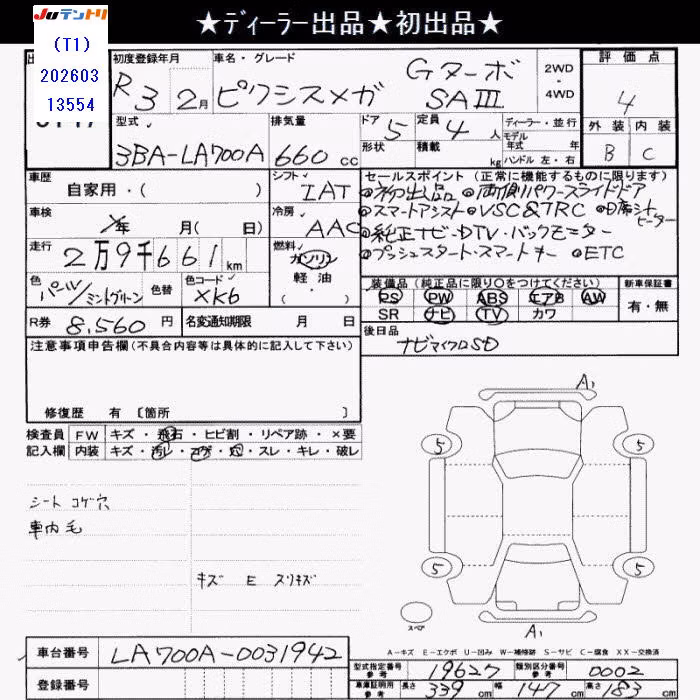 ★ディーラー出品★初出品★
JUテントリ
(T1)
202603
13554
初度登録年月 車名・グレード 評価点
R3 2月 ピクシスメガ Gターボ SAⅢ 2WD・4WD 4
外装 内装
B C
型式 排気量 ドア 定員 ディーラー・並行
3BA-LA700A 660cc 5 4人 モデル年式 年
形状 積載 kg ハンドル 左・右
車歴 シフト セールスポイント(正常に機能するものに限ります)
自家用・( ) IAT ◎初出品 ◎両側パワースライドドア
車検 冷房 ◎スマートアシスト ◎VSC&TRC ◎D席シートヒーター
年 月( 日) AAC ◎純正ナビ・DTV・バックモニター
走行 燃料 ◎プッシュスタート・スマートキー ◎ETC
2万9千661km ガソリン
軽油・
( )
色 色替 色コード
パール/ミントグリーン XK6
装備品(純正品に限り○をつけてください) 新車保証書
PS PW ABS エアB AW 有・無
SR ナビ TV カワ
R券 8,560円 名変通知期限 月 日 後日品
ナビマイクロSD
注意事項申告欄(不具合内容等は具体的に記入して下さい)
修復歴 有 〔箇所 〕
検査員 FW キズ・飛石・ヒビ割・リペア跡・×要
記入欄 内装 キズ・汚レ・コゲ・穴・スレ・キレ・破レ
シート コゲ穴
車内毛
キズ E スリキズ
A1
5 5
5 5
スペア
A1
A-キズ E-エクボ U-凹み W-補修跡 S-サビ C-腐食 XX-交換済
車台番号 LA700A-0031942
登録番号
型式指定番号 参考 19627 類別区分番号 参考 0002
車庫証明用 参考 長さ 339cm 幅 147cm 高さ 183cm